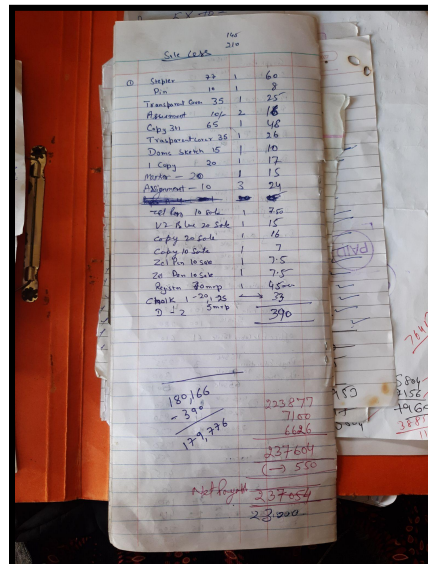 145
210
Sale Loss
① Stepler 77 1 60
Pin 10 1 8
Transparent Cover 35 1 25
Assignment 10/- 2 16
Copy 311 65 1 46
Trasparent cover 35 1 26
Doms Sketch 15 1 10
1 Copy 20 1 17
Marker - 20 1 15
Assignment - 10 3 24
Zel Pen 10 Sale 1 7.50
V7 Blue 20 Sale 1 15
Copy 20 Sale 1 16
Copy 10 Sale 1 7
Zel Pen 10 Sale 1 7.5
Zel Pen 10 Sale 1 7.5
Register 70 mrp 1 45
Chalk 1 - 20, 1 - 25 → 33
D - 2 5 mrp
390
180,166
- 390
179,776
223877
7100
6626
237604
(-) 550
Net Payable 237054
23,000
PAID